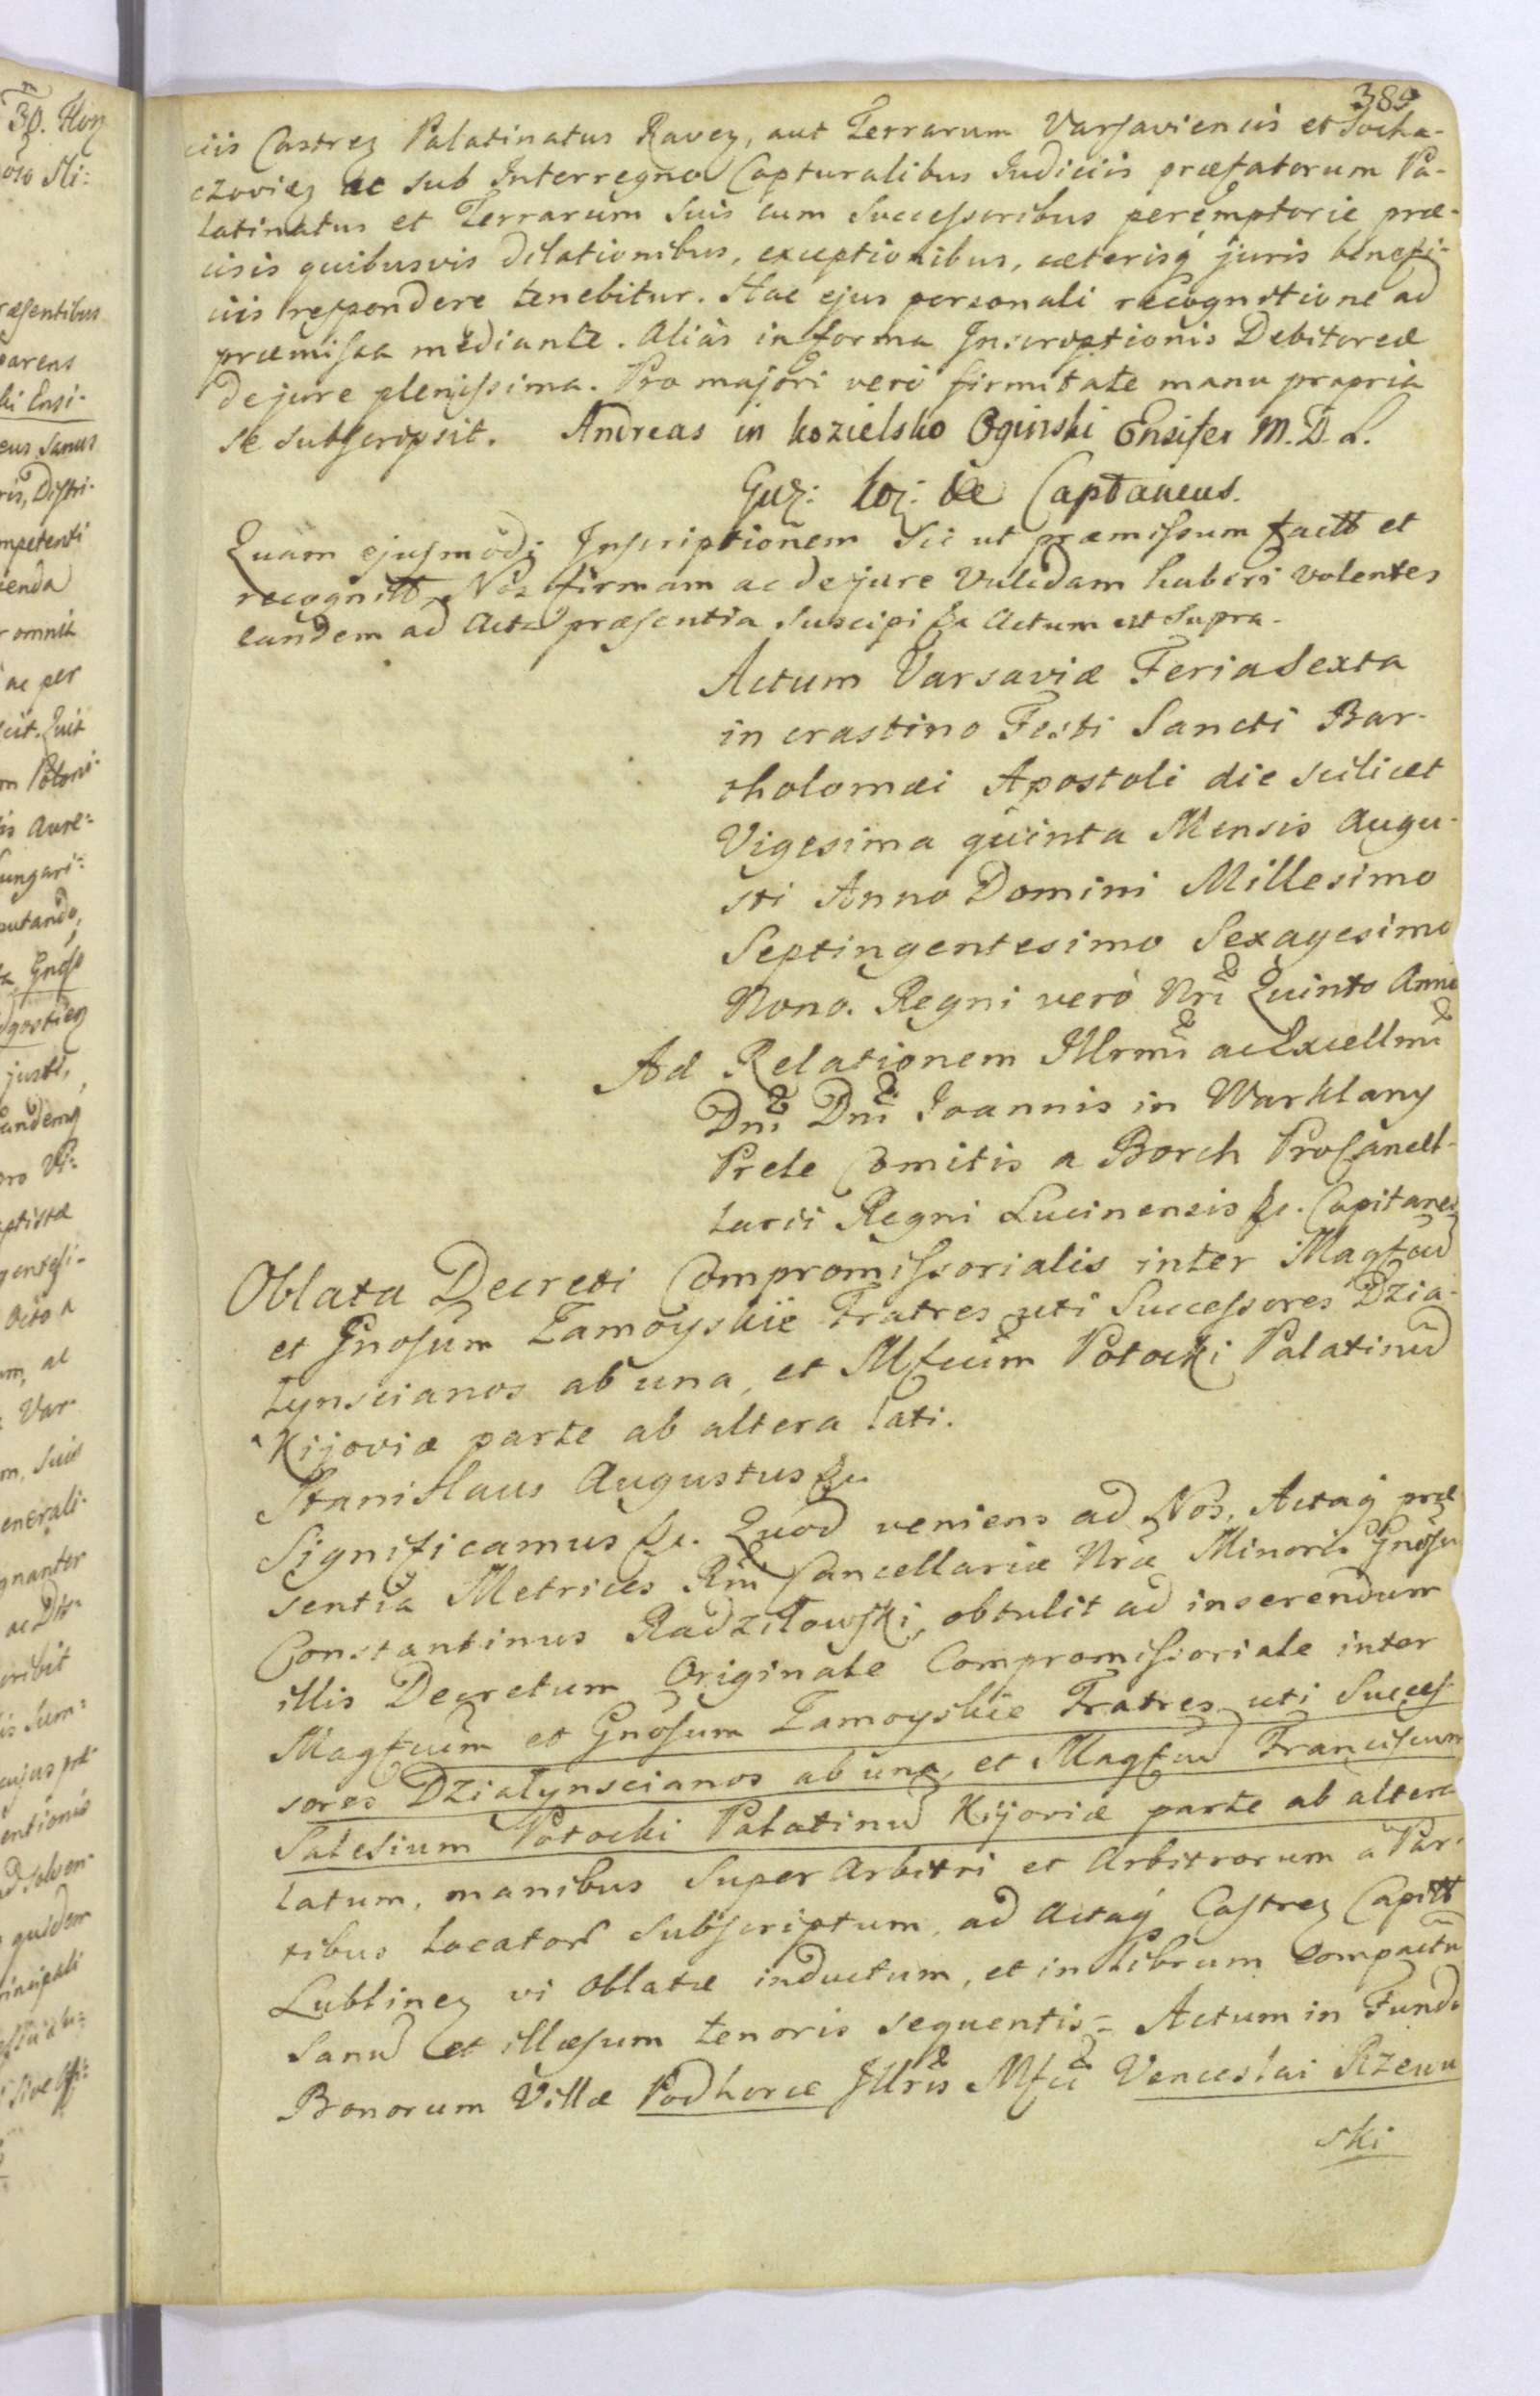 389
ciis Castreꝫ Palatinatus Raveꝫ, aut Terrarum Varsaviensis et Socha-
czovieꝫ ac sub Interregno Capturalibus Judiciis præfatorum Pa-
latinatus et Terrarum suis cum Successoribus peremptorie præ-
cisis quibusvis dilationibus, exceptionibus, cæterisq́ juris benefi-
ciis respondere tenebitur. Hac ejus personali recognitione ad
præmissa mediante. Aliàs in forma Inscriptionis Debitoreæ
de jure plenissima. Pro majori verò firmitate manu propria
se subscripsit. Andreas in Kozielsko Oginski Ensifer M. D. L.
Capitaneus.
Quam ejusmodi Inscriptionem sic ut præmissum factt et
recognitt, Nos firmam ac de jure Validam haberi volentes
eandem ad Acta præsentia suscipi &c Actum ut supra.
Actum Varsaviæ Feria Sexta
in crastino Festi Sancti Bar-
tholomæi Apostoli die scilicet
Vigesima quinta Mensis Augu-
sti Anno Domini Millesimo
Septingentesimo Sexagesimo
Nono. Regni verò Nri Quinto Anno
Ad Relationem Illrmi ac Excellmi
Dni Dni Joannis in Warklany
Prele Comitis a Borch ProCancel-
larii Regni Lucinensis &c. Capitanei
Oblata Decreti Compromissorialis inter Magfcū
et Gnosum Zamoyskie Fratres uti Successores Dzia-
lynscianos ab una, et Mfcum Potocki Palatinū
Kijoviæ parte ab altera lati.
Stanislaus Augustus &c.
Significamus &c. Quod veniens ad Nos, Actaq́ præ-
sentia Metrices Rni Cancellariæ Nræ Minoris Gnosu
Constantinus Radziłowski, obtulit ad inserendum
illis Decretum Originale Compromissoriale inter
Magfcum et Gnosum Zamoyskie Fratres uti Succes-
sores Dzialynscianos ab una, et Magfcū Franciscum
Salesium Potocki Palatinū Kijoviæ parte ab altera
latum, manibus Super Arbitri et Arbitrorum à Par-
tibus locator subscriptum, ad Actaq́ Castreꝫ Capitt
Lublineꝫ vi oblatæ inductum, et in librum compactū
Sanū et illæsum tenoris sequentis = Actum in Fundo
Bonorum Villæ Podhorce Illris Mfci Venceslai Rzewu
ski